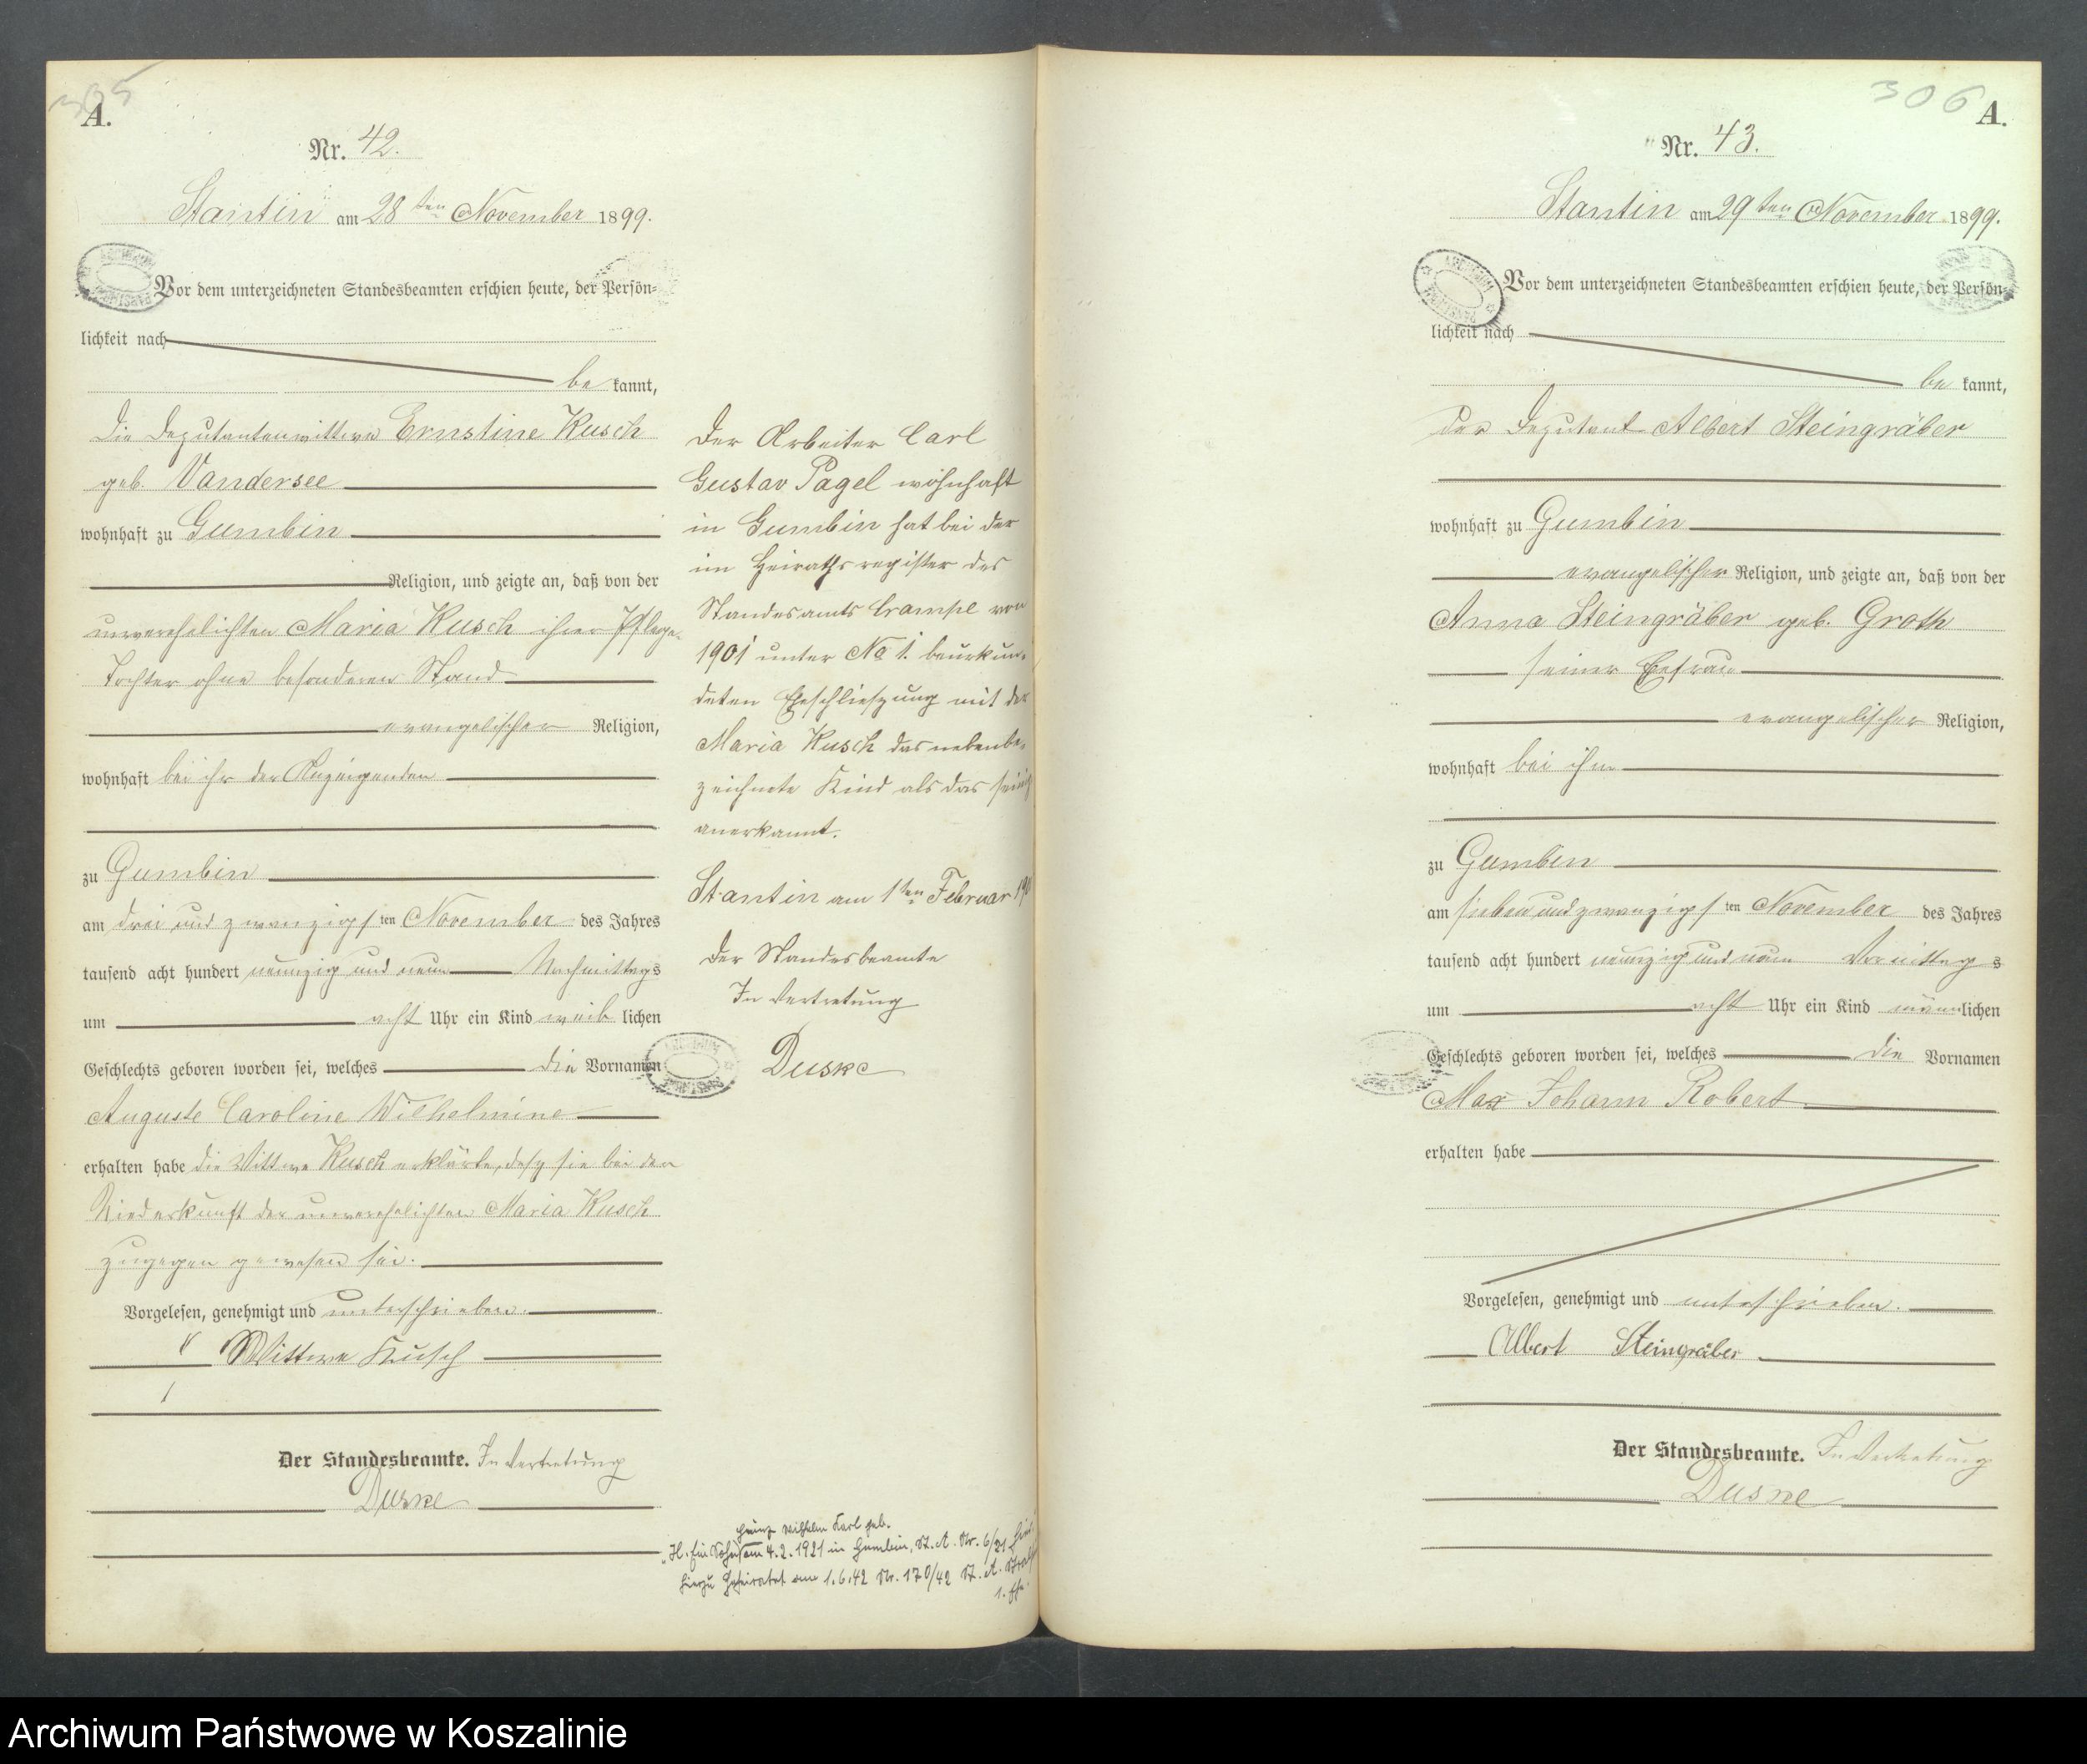 305
A.
Nr. 42.
Stantin am 28ten November 1899.
Vor dem unterzeichneten Standesbeamten erschien heute, der Persön-
lichkeit nach
be kannt,
die Deputantenwittwe Ernstine Kusch
geb. Vandersee
wohnhaft zu Gumbin
Religion, und zeigte an, daß von der
unverehelichten Maria Kusch ihrer Pflege-
tochter ohne besonderen Stand
evangelischer Religion,
wohnhaft bei ihr der Anzeigenden
zu Gumbin
am drei und zwanzigsten November des Jahres
tausend acht hundert neunzig und neun Nachmittags
um acht Uhr ein Kind weib lichen
Geschlechts geboren worden sei, welches die Vornamen
Auguste Caroline Wilhelmine
erhalten habe die Wittwe Kusch erklärte, daß sie bei der
Niederkunft der unverehelichten Maria Kusch
zugegen gewesen sei.
Vorgelesen, genehmigt und unterschrieben.
Wittwe Kusch
Der Standesbeamte. In Vertretung
Duske
Der Arbeiter Carl
Gustav Pagel wohnhaft
in Gumbin hat bei der
im Heirathsregister des
Standesamts Crampe von
1901 unter No 1. beurkun-
deten Eheschließung mit der
Maria Kusch das nebenbe-
zeichnete Kind als das seinige
anerkannt.
Stantin am 1ten Februar 190
Der Standesbeamte
In Vertretung
Duske
Heinz Wilhelm Karl geb.
H. Ein Sohn am 4.2.1921 in Gumbin, St. A. Nr. 6/21
hierzu Geheiratet am 1.6.42 Nr. 170/42 St. A.
1. Ehe
306
A.
Nr. 43.
Stantin am 29ten November 1899.
Vor dem unterzeichneten Standesbeamten erschien heute, der Persön-
lichkeit nach
be kannt,
der Deputant Albert Steingräber
wohnhaft zu Gumbin
evangelischer Religion, und zeigte an, daß von der
Anna Steingräber geb. Groth
seiner Ehefrau
evangelischer Religion,
wohnhaft bei ihm
zu Gumbin
am sieben und zwanzigsten November des Jahres
tausend acht hundert neunzig und neun Vormittags
um acht Uhr ein Kind männlichen
Geschlechts geboren worden sei, welches die Vornamen
Max Johann Robert
erhalten habe
Vorgelesen, genehmigt und unterschrieben.
Albert Steingräber
Der Standesbeamte. In Vertretung
Duske
Archiwum Państwowe w Koszalinie